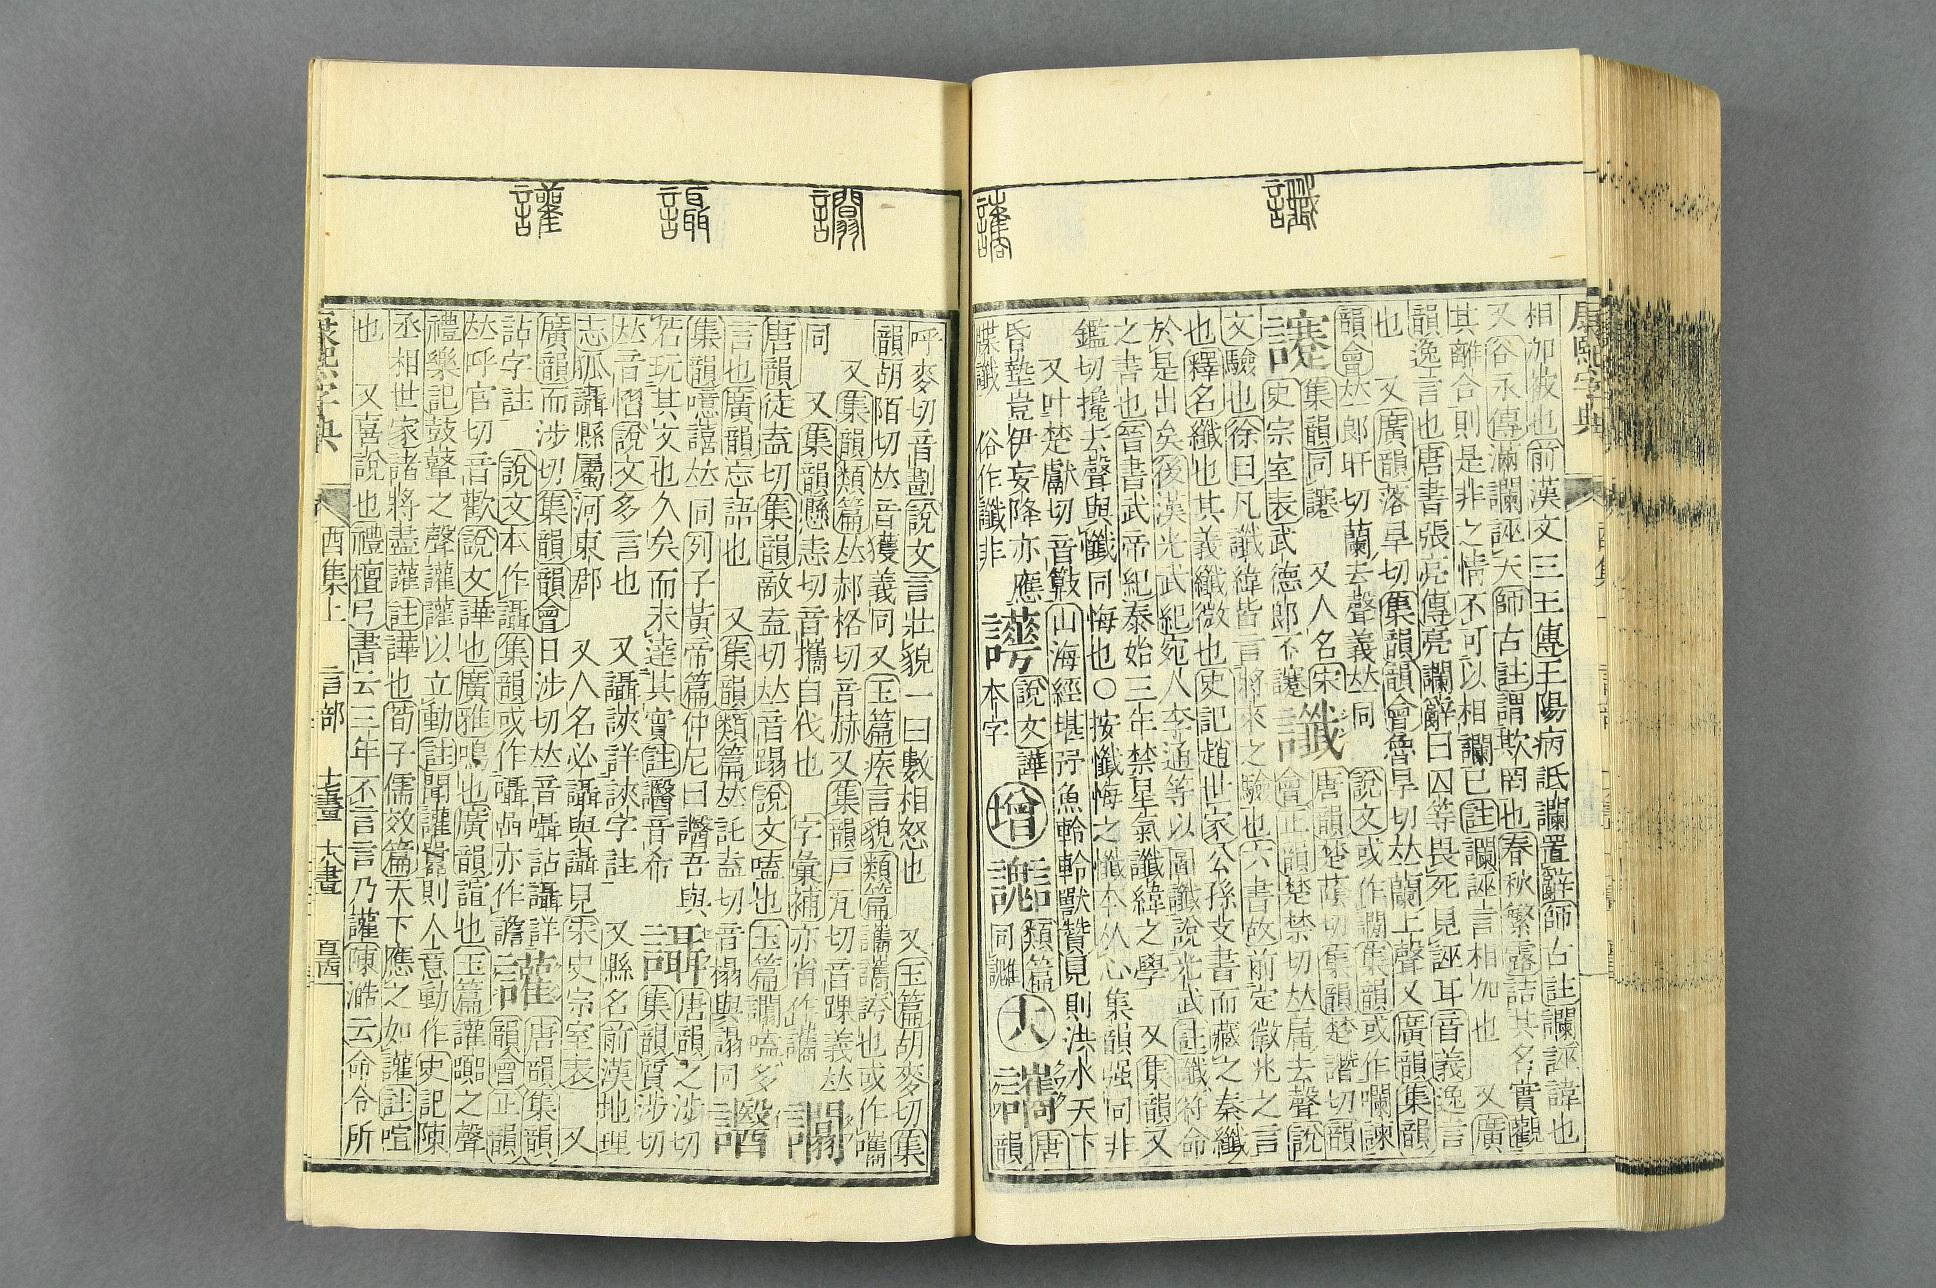 康熙字典
相加被也前漢文三王傳王陽病詆讕置辭師古註讕誣諱也
又谷永傳滿讕誣天師古註謂欺罔也春秋繁露詰其名實觀
其離合則是非之情不可以相讕已註讕誣言相加也 又廣
韻逸言也唐書張亮傳亮讕辭曰囚等畏死見誣耳音義逸言
也 又廣韻落旱切集韻韻會魯旱切𠀤蘭上聲又廣韻集韻
韻會𠀤郎旰切蘭去聲義𠀤同 說文或作集韻或作囒諫
集韻同 又人名宋
史宗室表武德郎不
讖
唐韻楚蔭切集韻楚譖切韻
會正韻楚禁切𠀤去聲說
文驗也徐曰凡讖緯皆言將來之驗也六書故前定徵兆之言
也釋名纖也其義纖微也史記趙世家公孫支書而藏之秦讖
於是出矣後漢光武紀宛人李通等以圖讖說光武註讖符命
之書也晉書武帝紀泰始三年禁星氣讖緯之學 又集韻又
鑑切攙去聲與懺同悔也○按懺悔之懺本从心集韻强同非
又叶楚獻切音山海經堪㐨魚軨軨獸贊見則洪水天下
昏墊豈伊妄降亦應
牒讖 俗作䜟非
說文譁
本字
增
類篇
同讎
大
讗
唐
韻
呼麥切音劃說文言壯貌一曰數相怒也 又玉篇胡麥切集
韻胡陌切𠀤音獲義同又玉篇疾言貌類篇讗讗也或作
又集韻類篇𠀤郝格切音赫又集韻戸瓦切音踝義𠀤
同 又集韻懸恚切音攜自伐也 字彙補亦省作
唐韻徒盍切集韻敵盍切𠀤音蹋說文嗑也玉篇嗑多
言也廣韻忘語也 又集韻類篇𠀤託盍切音榻與同
譩
集韻噫譆𠀤同列子黃帝篇仲尼曰譩吾與
若玩其文也久矣而未達其實註譩音希
讘
唐韻之涉切
集韻質涉切
𠀤音慴說文多言也 又讘詼詳詼字註 又縣名前漢地理
志狐讘縣屬河東郡 又人名必讘與讘見宋史宗室表 又
廣韻而涉切集韻韻會日涉切𠀤音囁詀讘詳
詀字註 說文本作讘集韻或作囁嵒亦作譫
讙
唐韻集韻
韻會正韻
𠀤呼官切音歡說文譁也廣雅鳴也廣韻諠也玉篇讙嚻之聲
禮樂記鼓鼙之聲讙讙以立動註聞讙嚻則人意動作史記陳
丞相世家諸將盡讙註譁也荀子儒效篇天下應之如讙註喧
也 又喜說也禮檀弓書云三年不言言乃讙陳澔云命令所
康熙字典 酉集上 言部 十七畫 十八畫